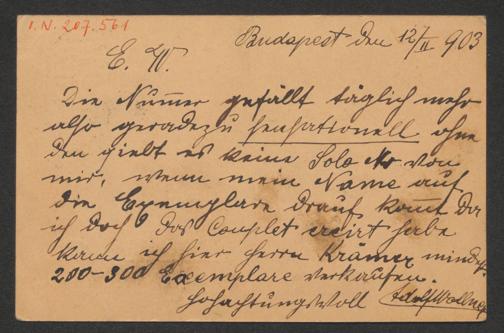 I.N. 207.561
Budapest den 12/II 903
E. W.
Die Numer gefällt täglich mehr
also geradezu sensationell ohne
den giebt es keine Solo Nr von
mir, wenn mein Name auf
die Exemplare drauf komt Da
ich doch das Couplet creirt habe
kann ich hier Herrn Krämer mindest.
200-300 Exemplare verkaufen.
Hochachtungsvoll Adolf